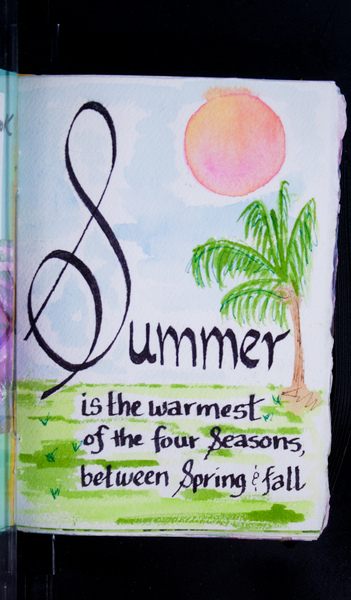 Summer
is the warmest
of the four Seasons,
between Spring & fall